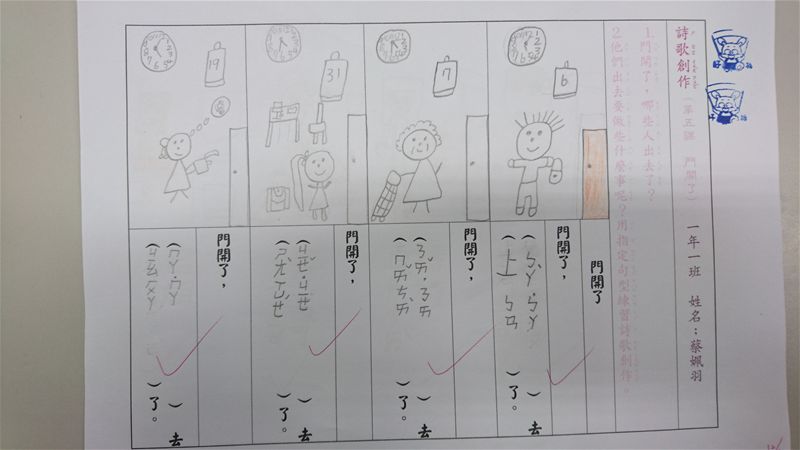 詩歌創作（第五課 門開了） 一年一班 姓名：蔡姵羽
1.門開了，哪些人出去了？
2.他們出去要做些什麼事呢？用指定句型練習詩歌創作。
門開了
門開了，
（ㄅㄚˋ˙ㄅㄚ）去
（上ㄅㄢ）了。
門開了，
（ㄋㄞˇ˙ㄋㄞ）去
（ㄇㄞˇㄘㄞˋ）了。
門開了，
（ㄐㄧㄝˇ˙ㄐㄧㄝ）去
（ㄕㄤˋㄒㄩㄝˊ）了。
門開了，
（ㄇㄚ˙ㄇㄚ）去
（ㄐㄧㄠㄏㄨㄚ）了。
6
7
31
19